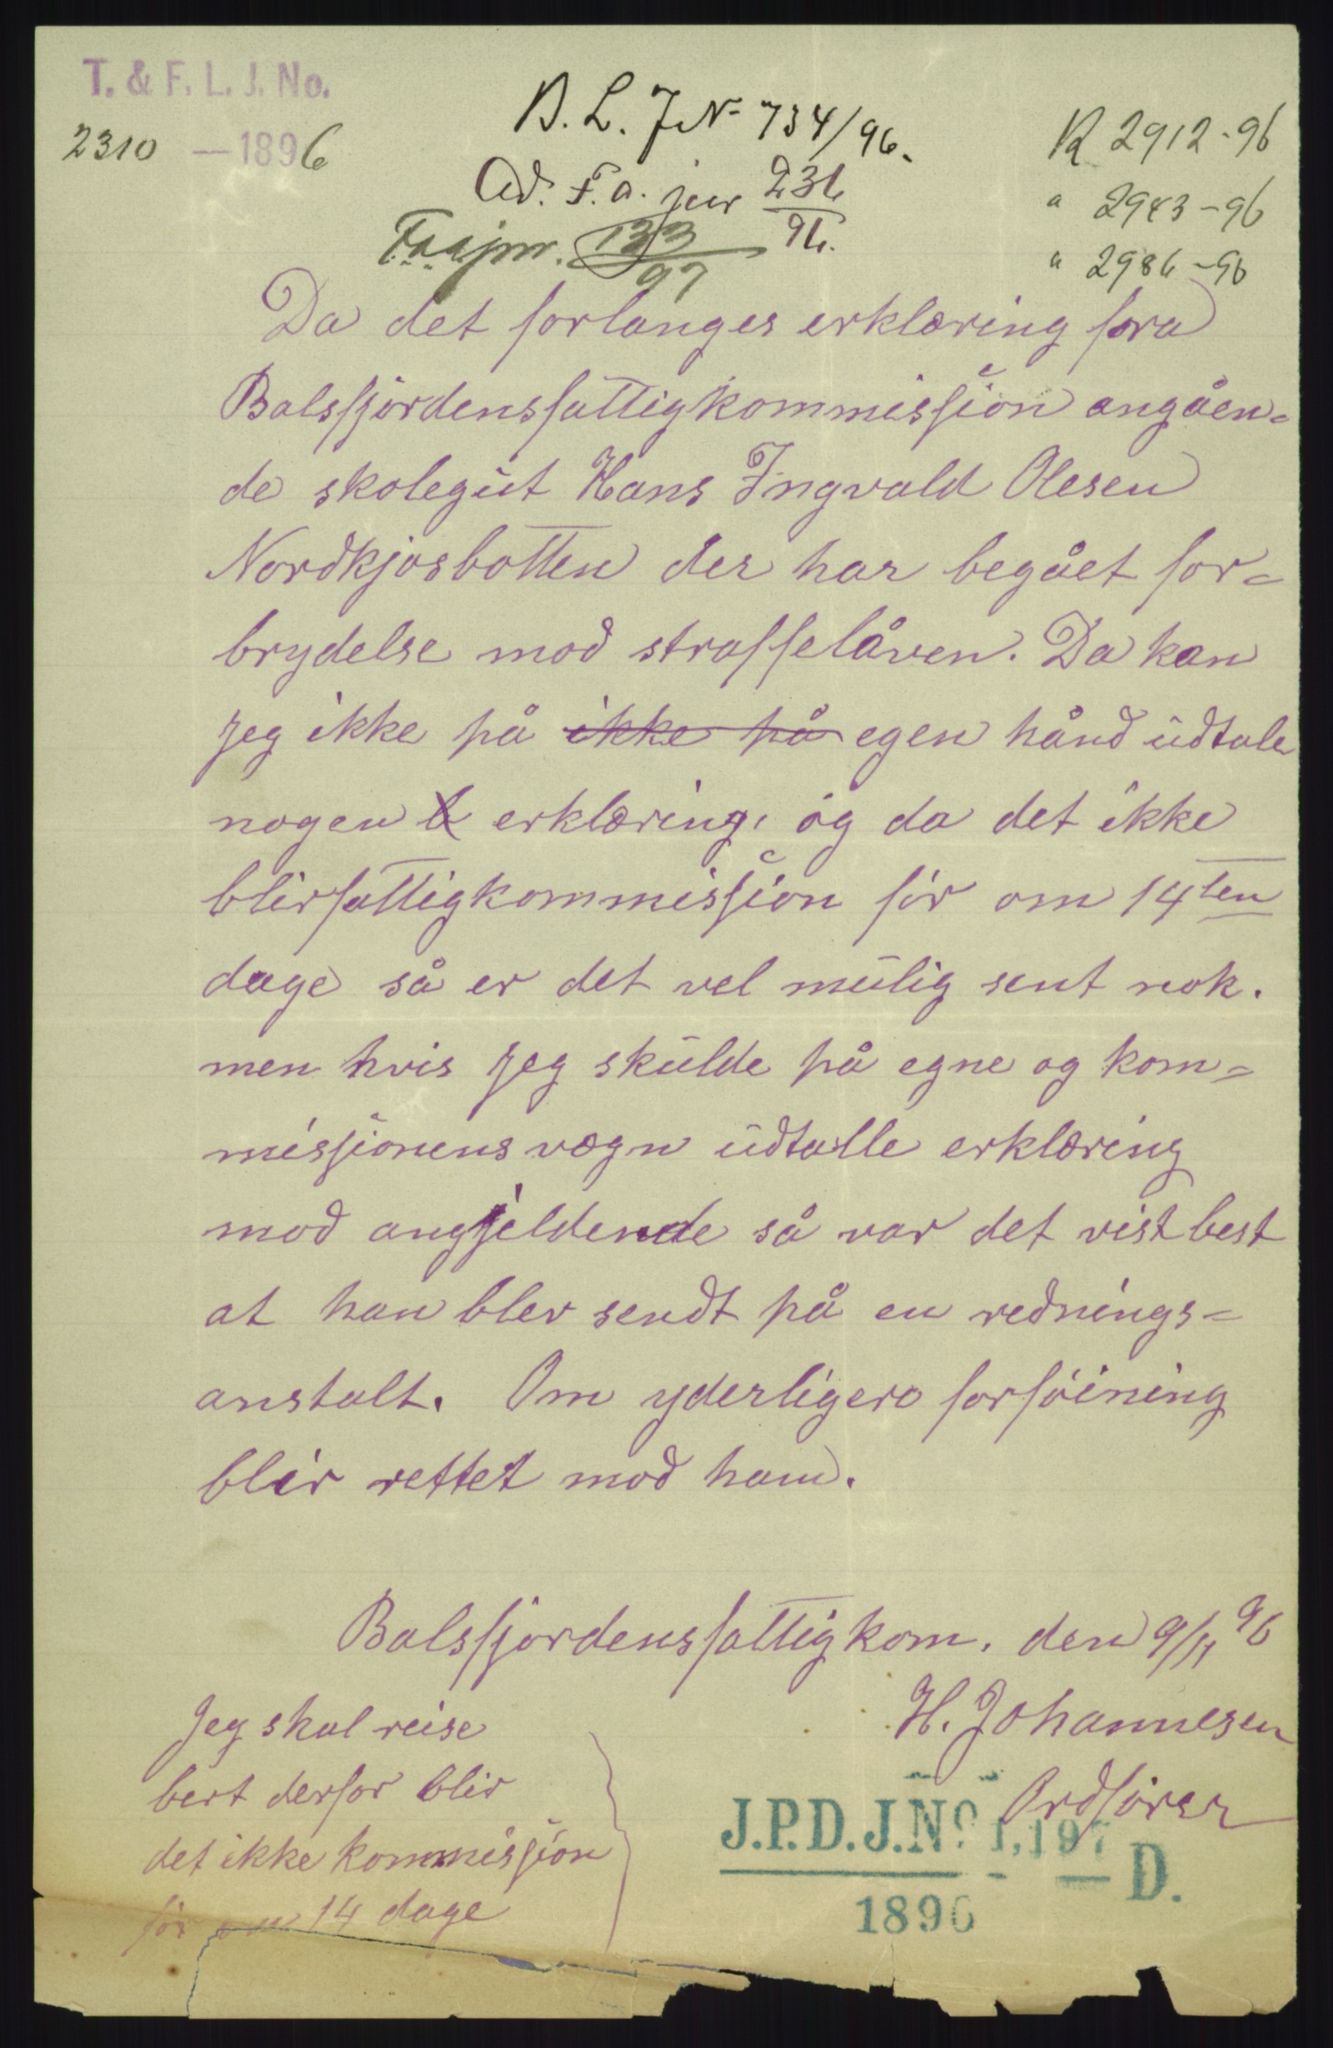 T. & F. L. J. No.
2310 — 1896
B. L. J No 734/96.
Ad. F. a. jnr 236/96.
F.a.a.jnr. 133/97
R 2912-96
" 2943-96
" 2986-96
Da det forlanges erklæring fora
Balsfjordensfattigkommissjon angåen=
de skolegut Hans Ingvald Olesen
Nordkjosbotten der har begået for=
brydelse mod straffelåven. Da kan
jeg ikke på ikke på egen hånd udtale
nogen erklæring, og da det ikke
blirfattigkommissjon før om 14ten
dage så er det vel mulig sent nok.
men hvis jeg skulde på egne og kom=
missjonens vægn udtalle erklæring
mod angjeldende så var det vist best
at han blev sendt på en rednings=
anstalt. Om yderligere forføining
blir rettet mod ham.
Balsfjordensfattigkom. den 9/11 96
H. Johannesen
Ordfører
Jeg skal reise
bort derfor blir
det ikke kommissjon
før om 14 dage
J.P.D.J.No 1,197 — D.
1896